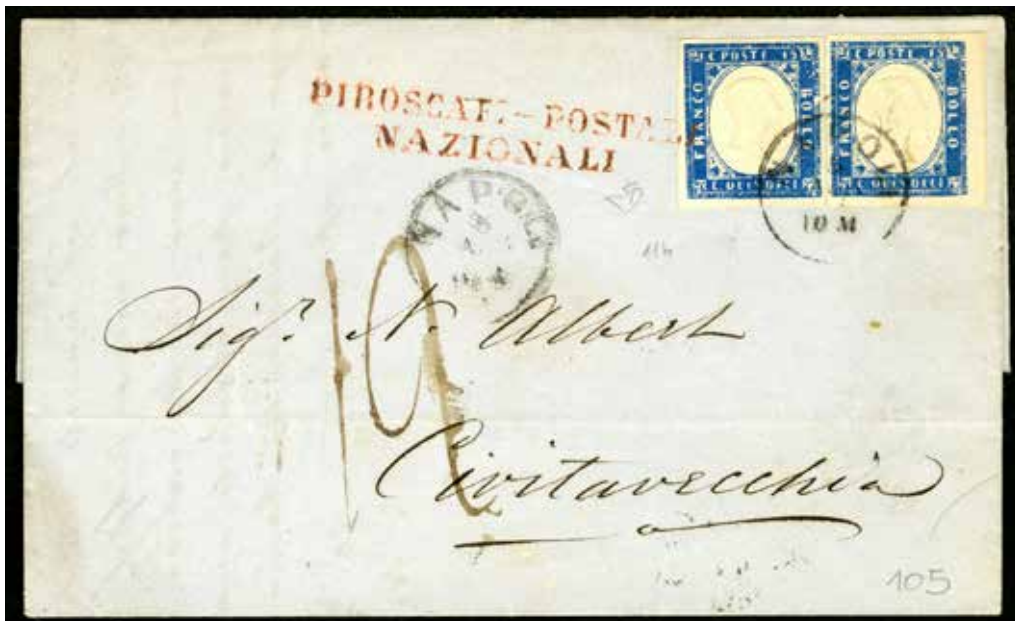 PIROSCAFI-POSTALI
NAZIONALI
C. POSTE 15
FRANCO
BOLLO
C. QUINDICI
C. POSTE 15
FRANCO
BOLLO
C. QUINDICI
10 M
NAPOLI
Sig.r N. Albert
19
Civitavecchia
105